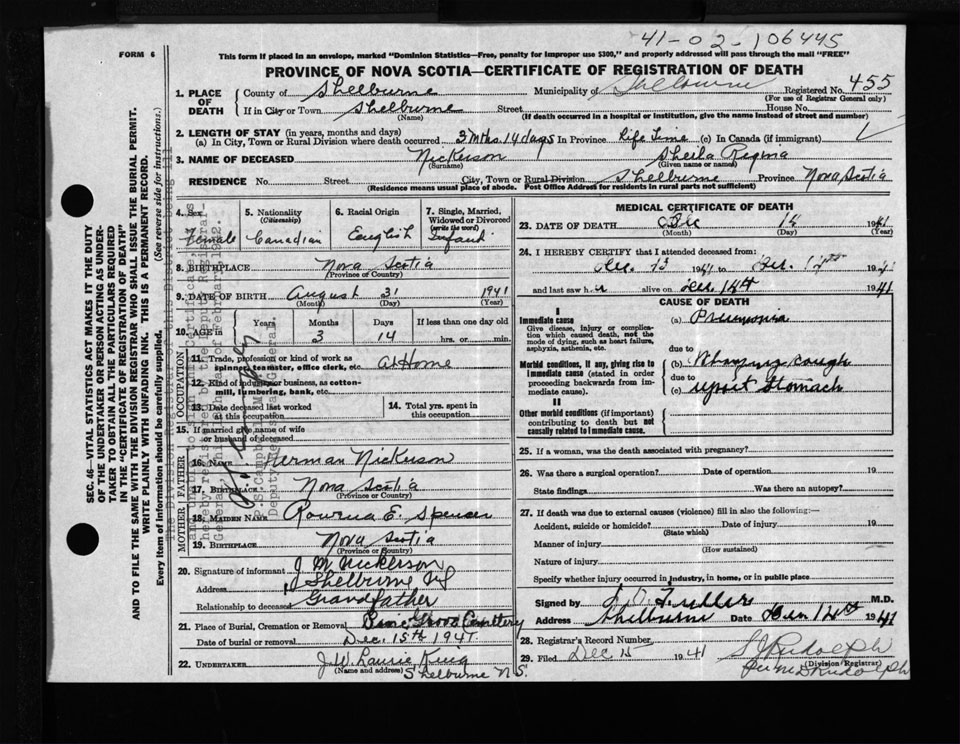 41-02-106445
FORM 6
This form if placed in an envelope, marked "Dominion Statistics—Free, penalty for improper use $300," and properly addressed will pass through the mail "FREE"
PROVINCE OF NOVA SCOTIA—CERTIFICATE OF REGISTRATION OF DEATH
1. PLACE OF DEATH County of Shelburne Municipality of Shelburne Registered No. 455
(For use of Registrar General only)
If in City or Town Shelburne Street House No.
(Name) (If death occurred in a hospital or institution, give the name instead of street and number)
2. LENGTH OF STAY (in years, months and days)
(a) In City, Town or Rural Division where death occurred 3 Mths. 14 days In Province Life Time (c) In Canada (if immigrant)
3. NAME OF DECEASED Nickerson Sheila Regina
(Surname) (Given name or names)
RESIDENCE No. Street City, Town or Rural Division Shelburne Province Nova Scotia
(Residence means usual place of abode. Post Office Address for residents in rural parts not sufficient)
4. Sex Female
5. Nationality (Citizenship) Canadian
6. Racial Origin English
7. Single, Married, Widowed or Divorced (write the word) Infant
8. BIRTHPLACE Nova Scotia
(Province or Country)
9. DATE OF BIRTH August 31 1941
(Month) (Day) (Year)
10. AGE in Years Months Days If less than one day old
3 14 hrs. or min.
OCCUPATION
11. Trade, profession or kind of work as spinner, teamster, office clerk, etc. at Home
12. Kind of industry or business, as cotton-mill, lumbering, bank, etc.
13. Date deceased last worked at this occupation
14. Total yrs. spent in this occupation
15. If married give name of wife or husband of deceased
FATHER
16. NAME Herman Nickerson
17. BIRTHPLACE Nova Scotia
(Province or Country)
MOTHER
18. MAIDEN NAME E. Spencer
19. BIRTHPLACE Nova Scotia
(Province or Country)
20. Signature of informant J M Nickerson
Address Shelburne NS
Relationship to deceased Grandfather
21. Place of Burial, Cremation or Removal Pine Grove Cemetery
Date of burial or removal Dec. 15th 1941
22. UNDERTAKER J. W. Laurie King
(Name and address) Shelburne N.S.
MEDICAL CERTIFICATE OF DEATH
23. DATE OF DEATH Dec 1941
(Month) (Day) (Year)
24. I HEREBY CERTIFY that I attended deceased from:
Dec. 13 1941 to Dec. 1941
and last saw h alive on Dec 14th 1941
CAUSE OF DEATH
I
Immediate cause
Give disease, injury or complication which caused death, not the mode of dying, such as heart failure, asphyxia, asthenia, etc.
(a) Pneumonia
due to
Morbid conditions, if any, giving rise to immediate cause (stated in order proceeding backwards from immediate cause).
(b) Whooping cough
due to
(c) upset Stomach
II
Other morbid conditions (if important) contributing to death but not causally related to immediate cause.
25. If a woman, was the death associated with pregnancy?
26. Was there a surgical operation? Date of operation 19
State findings Was there an autopsy?
27. If death was due to external causes (violence) fill in also the following:—
Accident, suicide or homicide? Date of injury 19
(State which)
Manner of injury
(How sustained)
Nature of injury
Specify whether injury occurred in industry, in home, or in public place
Signed by Fuller M.D.
Address Shelburne Date 1941
28. Registrar's Record Number
29. Filed Dec 15 1941 Rudolph
(Division Registrar)
Rudolph
SEC. 46—VITAL STATISTICS ACT MAKES IT THE DUTY
OF THE UNDERTAKER OR PERSON ACTING AS UNDER-
TAKER TO OBTAIN ALL THE PARTICULARS REQUIRED
IN THE "CERTIFICATE OF REGISTRATION OF DEATH"
AND TO FILE THE SAME WITH THE DIVISION REGISTRAR WHO SHALL ISSUE THE BURIAL PERMIT.
WRITE PLAINLY WITH UNFADING INK. THIS IS A PERMANENT RECORD.
Every item of information should be carefully supplied. (See reverse side for instructions.)